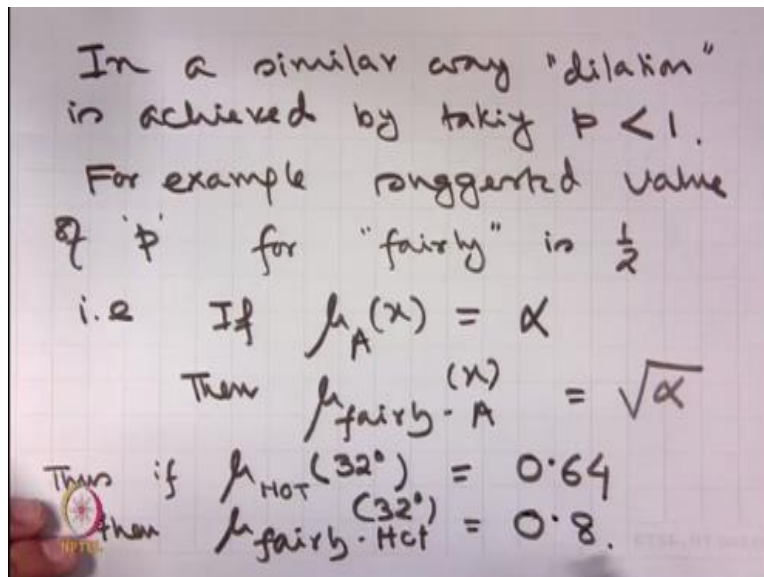 In a similar way "dilation"
is achieved by taking p < 1.
For example suggested value
of 'p' for "fairly" is 1/2
i.e If μ_A(x) = α
Then μ_fairly-A(x) = √α
Thus if μ_HOT(32°) = 0.64
then μ_fairly-Hot(32°) = 0.8.
NPTEL